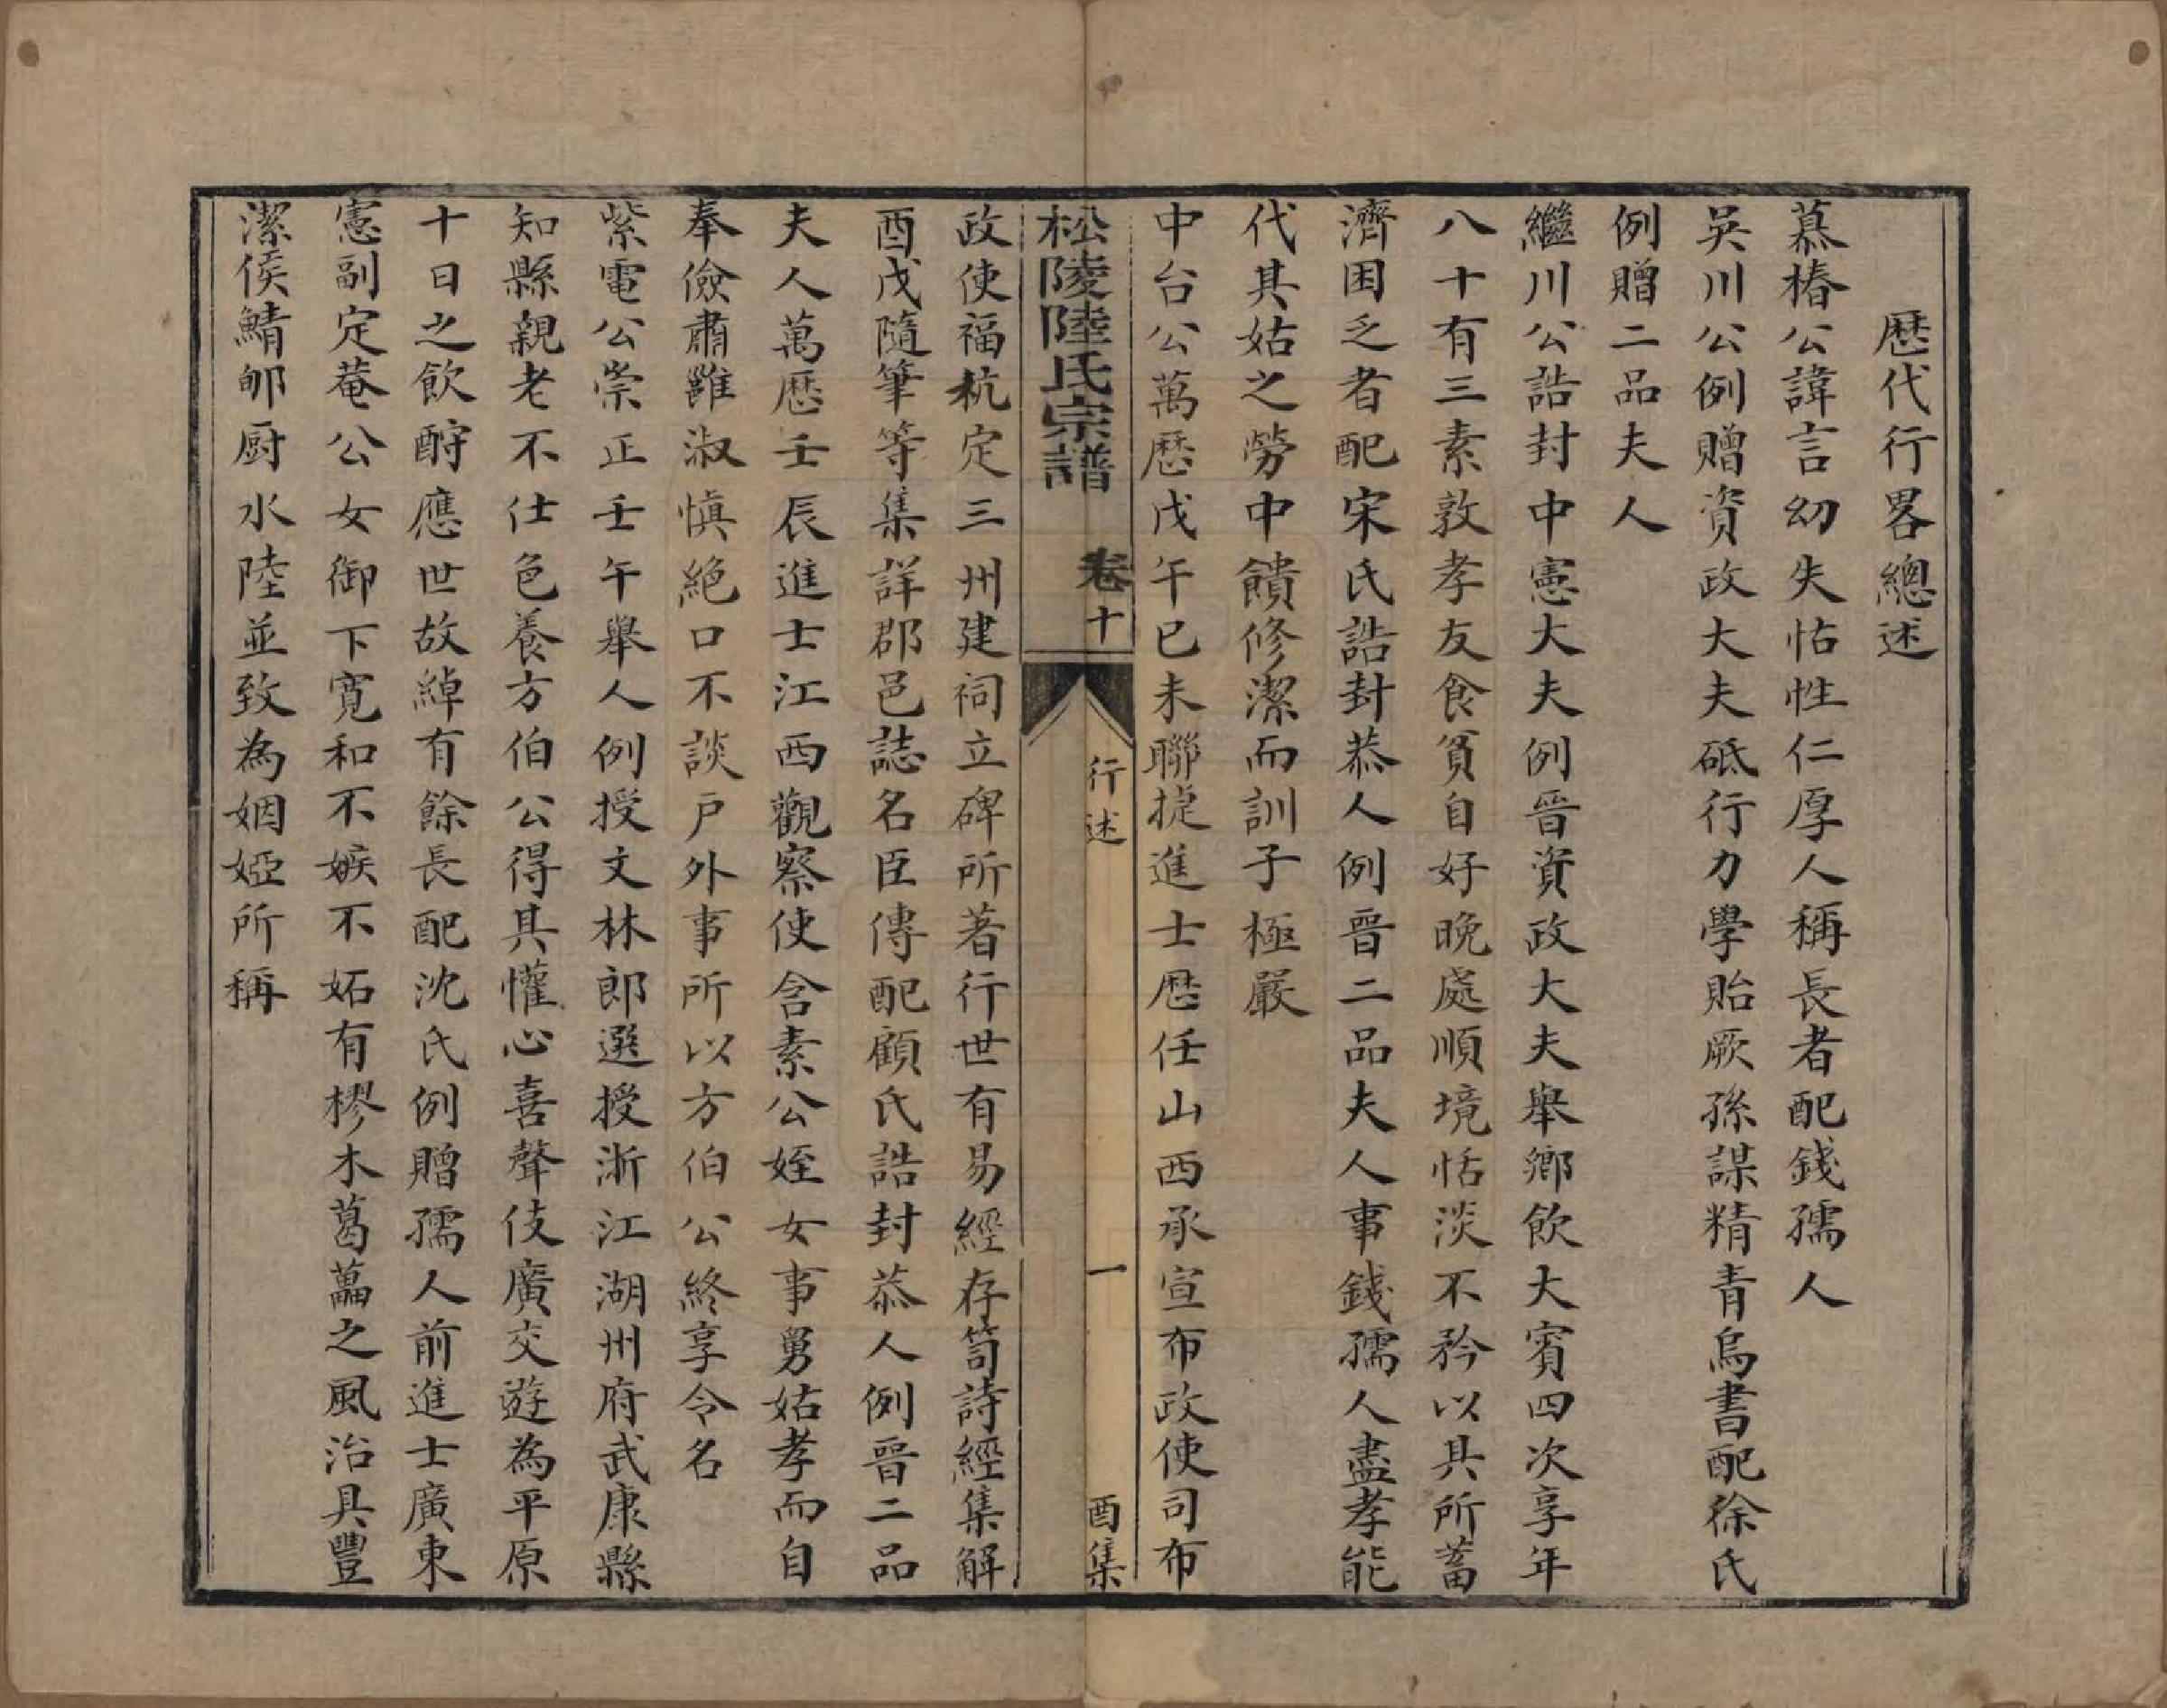 歷代行畧總述
慕椿公諱言幼失怙性仁厚人稱長者配錢孺人
吳川公例贈資政大夫砥行力學貽厥孫謀精青烏書配徐氏
例贈二品夫人
繼川公誥封中憲大夫例晉資政大夫舉鄉飲大賓四次享年
八十有三素敦孝友食貧自好晚處順境恬淡不矜以其所蓄
濟困乏者配宋氏誥封恭人例晉二品夫人事錢孺人盡孝能
代其姑之勞中饋修潔而訓子極嚴
中台公萬歷戊午已未聯捷進士歷任山西承宣布政使司布
松陵陸氏宗譜 卷十 行述 一 酉集
政使福杭定三州建祠立碑所著行世有易經存笥詩經集解
酉戌隨筆等集詳郡邑誌名臣傳配顧氏誥封恭人例晉二品
夫人萬歷壬辰進士江西觀察使含素公姪女事舅姑孝而自
奉儉肅雝淑慎絕口不談戶外事所以方伯公終享令名
紫電公崇正壬午舉人例授文林郎選授浙江湖州府武康縣
知縣親老不仕色養方伯公得其懽心喜聲伎廣交遊為平原
十日之飲酧應世故綽有餘長配沈氏例贈孺人前進士廣東
憲副定菴公女御下寬和不嫉不妬有樛木葛藟之風治具豐
潔侯鯖郇厨水陸並致為姻婭所稱